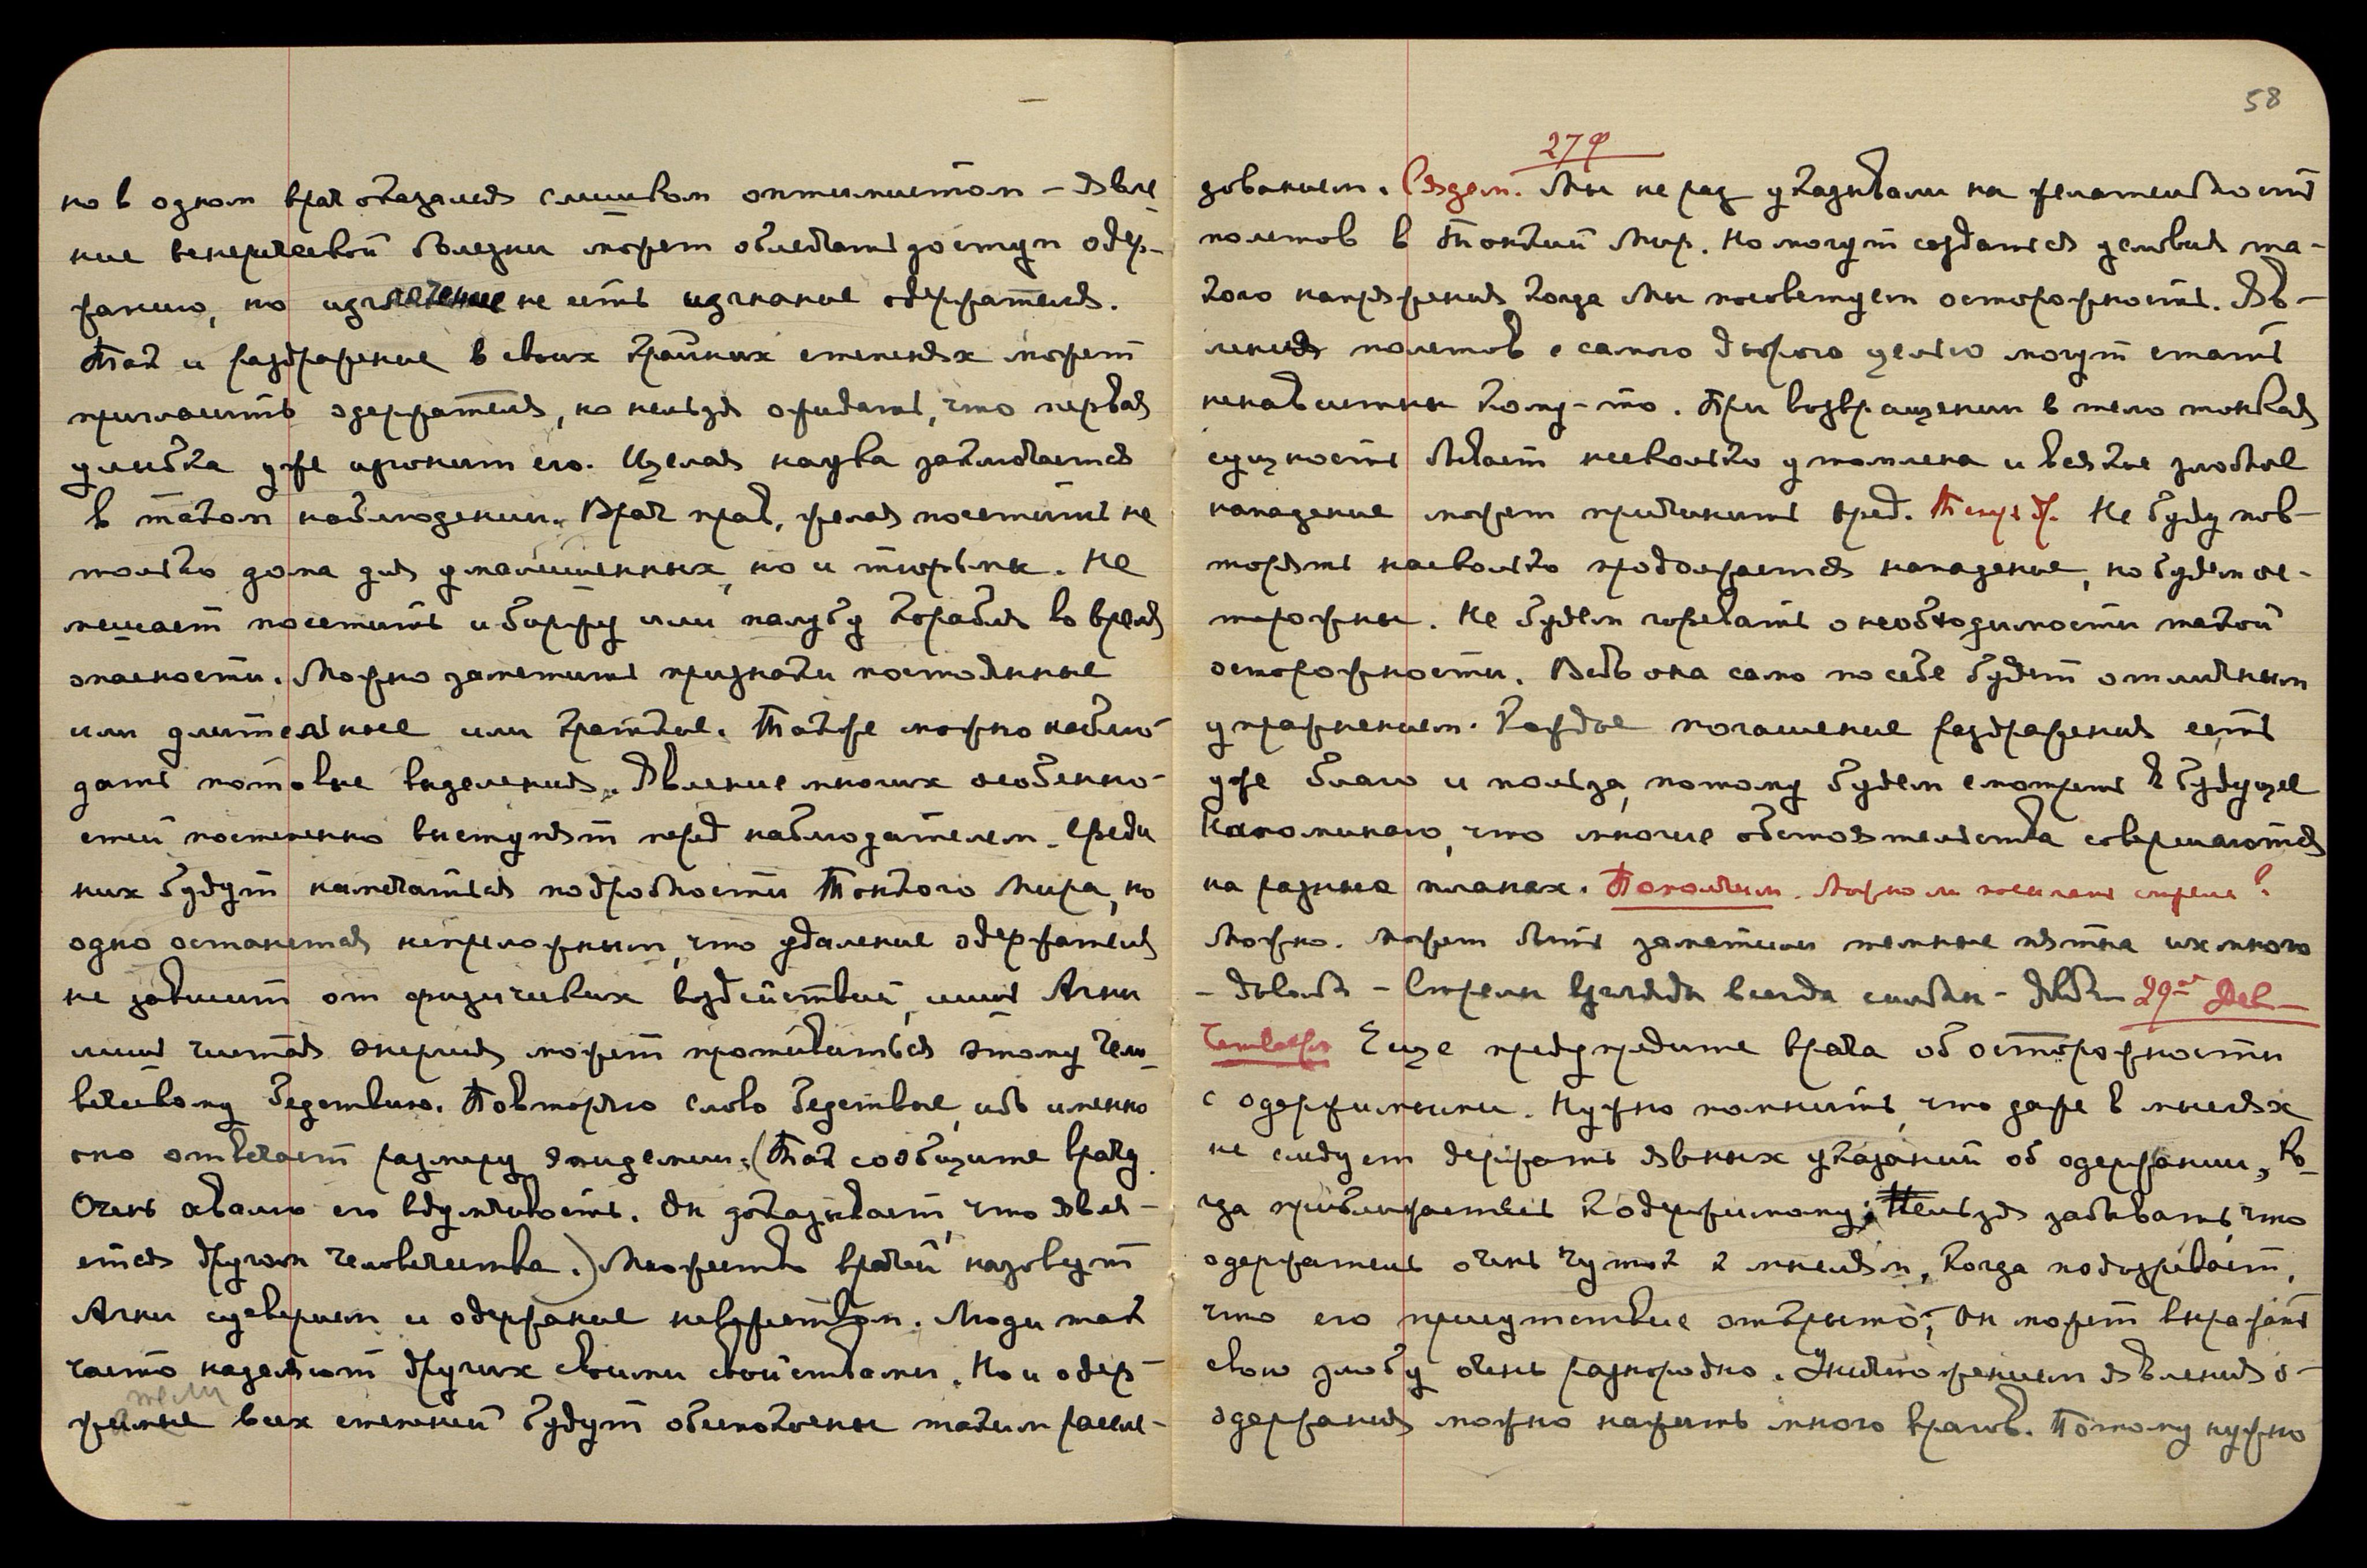 но в одном врач оказался слишком оптимистом – явле-
ние венерической болезни может облегчать доступ одер-
жанию, но излечение не есть изгнание одержателя.
Так и раздражение в своих крайних степенях может
пригласить одержателя, но нельзя ожидать, что первая
улыбка уже изгонит его. Целая наука заключается
в таком наблюдении. Врач прав, желая посетить не
только дома для умалишенных, но и тюрьмы. Не
мешает посетить и биржу или палубу корабля во время
опасности. Можно заметить признаки постоянные
или длительные или краткие. Также можно наблю-
дать потовые выделения. Явление многих особенно-
стей постепенно выступят перед наблюдателем. Среди
них будут намечаться подробности Тонкого Мира, но
одно останется непреложным, что удаление одержателя
не зависит от физических воздействий, лишь Агни
лишь чистая энергия может противиться этому чело-
веческому бедствию. Повторяю слово бедствие, ибо именно
оно отвечает размеру эпидемии. (Так сообщите врачу.
Очень хвалю его вдумчивость. Он доказывает, что явля-
ется другом человечества.) Множество врачей назовут
Агни суеверием и одержание невежеством. Люди так
часто наделяют других своими свойствами. Но и одер-
тели
жимые всех степеней будут обеспокоены таким рассле-
58
279
дованием. Сядем. Мы не раз указывали на желательность
полетов в Тонкий Мир. Но могут создаться условия та-
кого напряжения когда Мы посоветуем осторожность. Яв-
ления полетов с самою доброю целью могут стать
ненавистны кому-то. При возвращении в тело тонкая
сущность бывает несколько утомлена и всякое злобное
нападение может причинить вред. Не буду пов-
торять насколько продолжается нападение, но будем ос-
торожны. Не будем горевать о необходимости такой
осторожности. Ведь она сама по себе будет отличным
упражнением. Каждое погашение раздражения есть
уже благо и польза, потому будем смотреть в будущее
Напоминаю, что многие обстоятельства совершаются
на разных планах. Помолчим. Можно ли посылать стрелы?
Можно. Может быть заметили темные пятна их много
– довольно – стрелы взгляды всегда сильны – 29ое Дек –
Четверг Еще предупредите врача об осторожности
с одержимыми. Нужно помнить, что даже в мыслях
не следует держать явных указаний об одержании, ко-
гда приближаетесь к одержимому. Нельзя забывать, что
одержатель очень чуток к мыслям, когда подозревает,
что его присутствие открыто; Он может выражать
свою злобу очень разнородно. Уничтожением явления о-
одержания можно нажить много врагов. Потому нужно